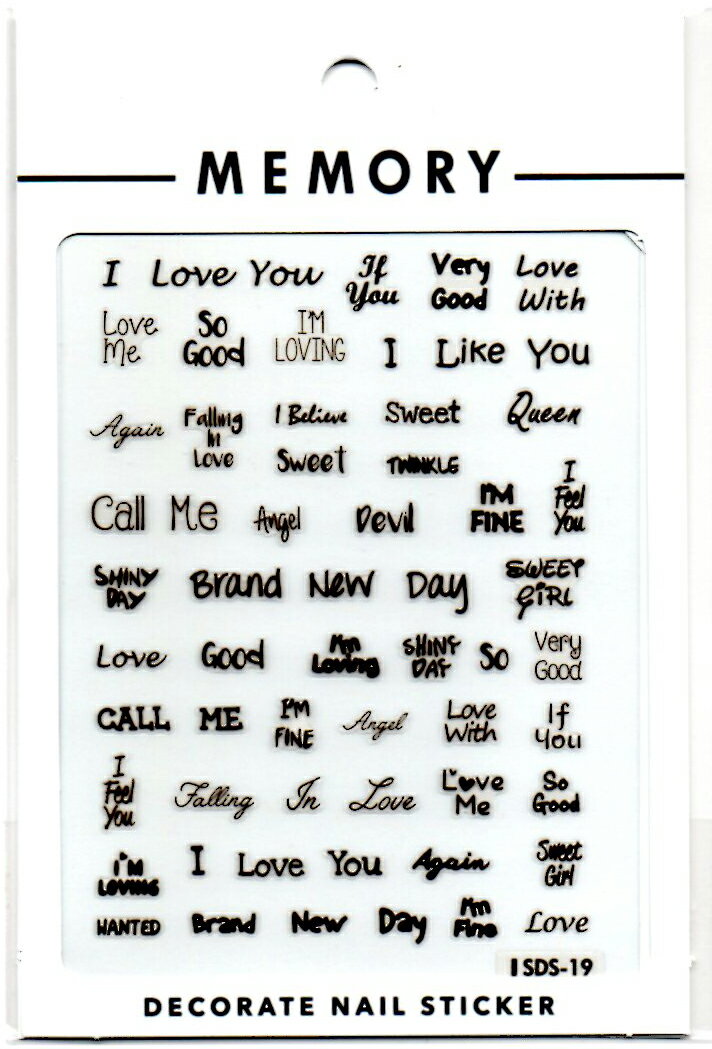 MEMORY
I Love You If You Very Good Love With
Love Me So Good I'M LOVING I Like You
Again Falling In Love I Believe Sweet Queen
Sweet TWINKLE
Call Me Angel Devil I'M FINE I Feel You
SHINY DAY Brand New Day SWEET GIRL
Love Good I'm Loving SHINY DAY So Very Good
CALL ME I'M FINE Angel Love With If You
I Feel You Falling In Love Love Me So Good
I'M LOVING I Love You Again Sweet Girl
WANTED Brand New Day I'm Fine Love
SDS-19
DECORATE NAIL STICKER